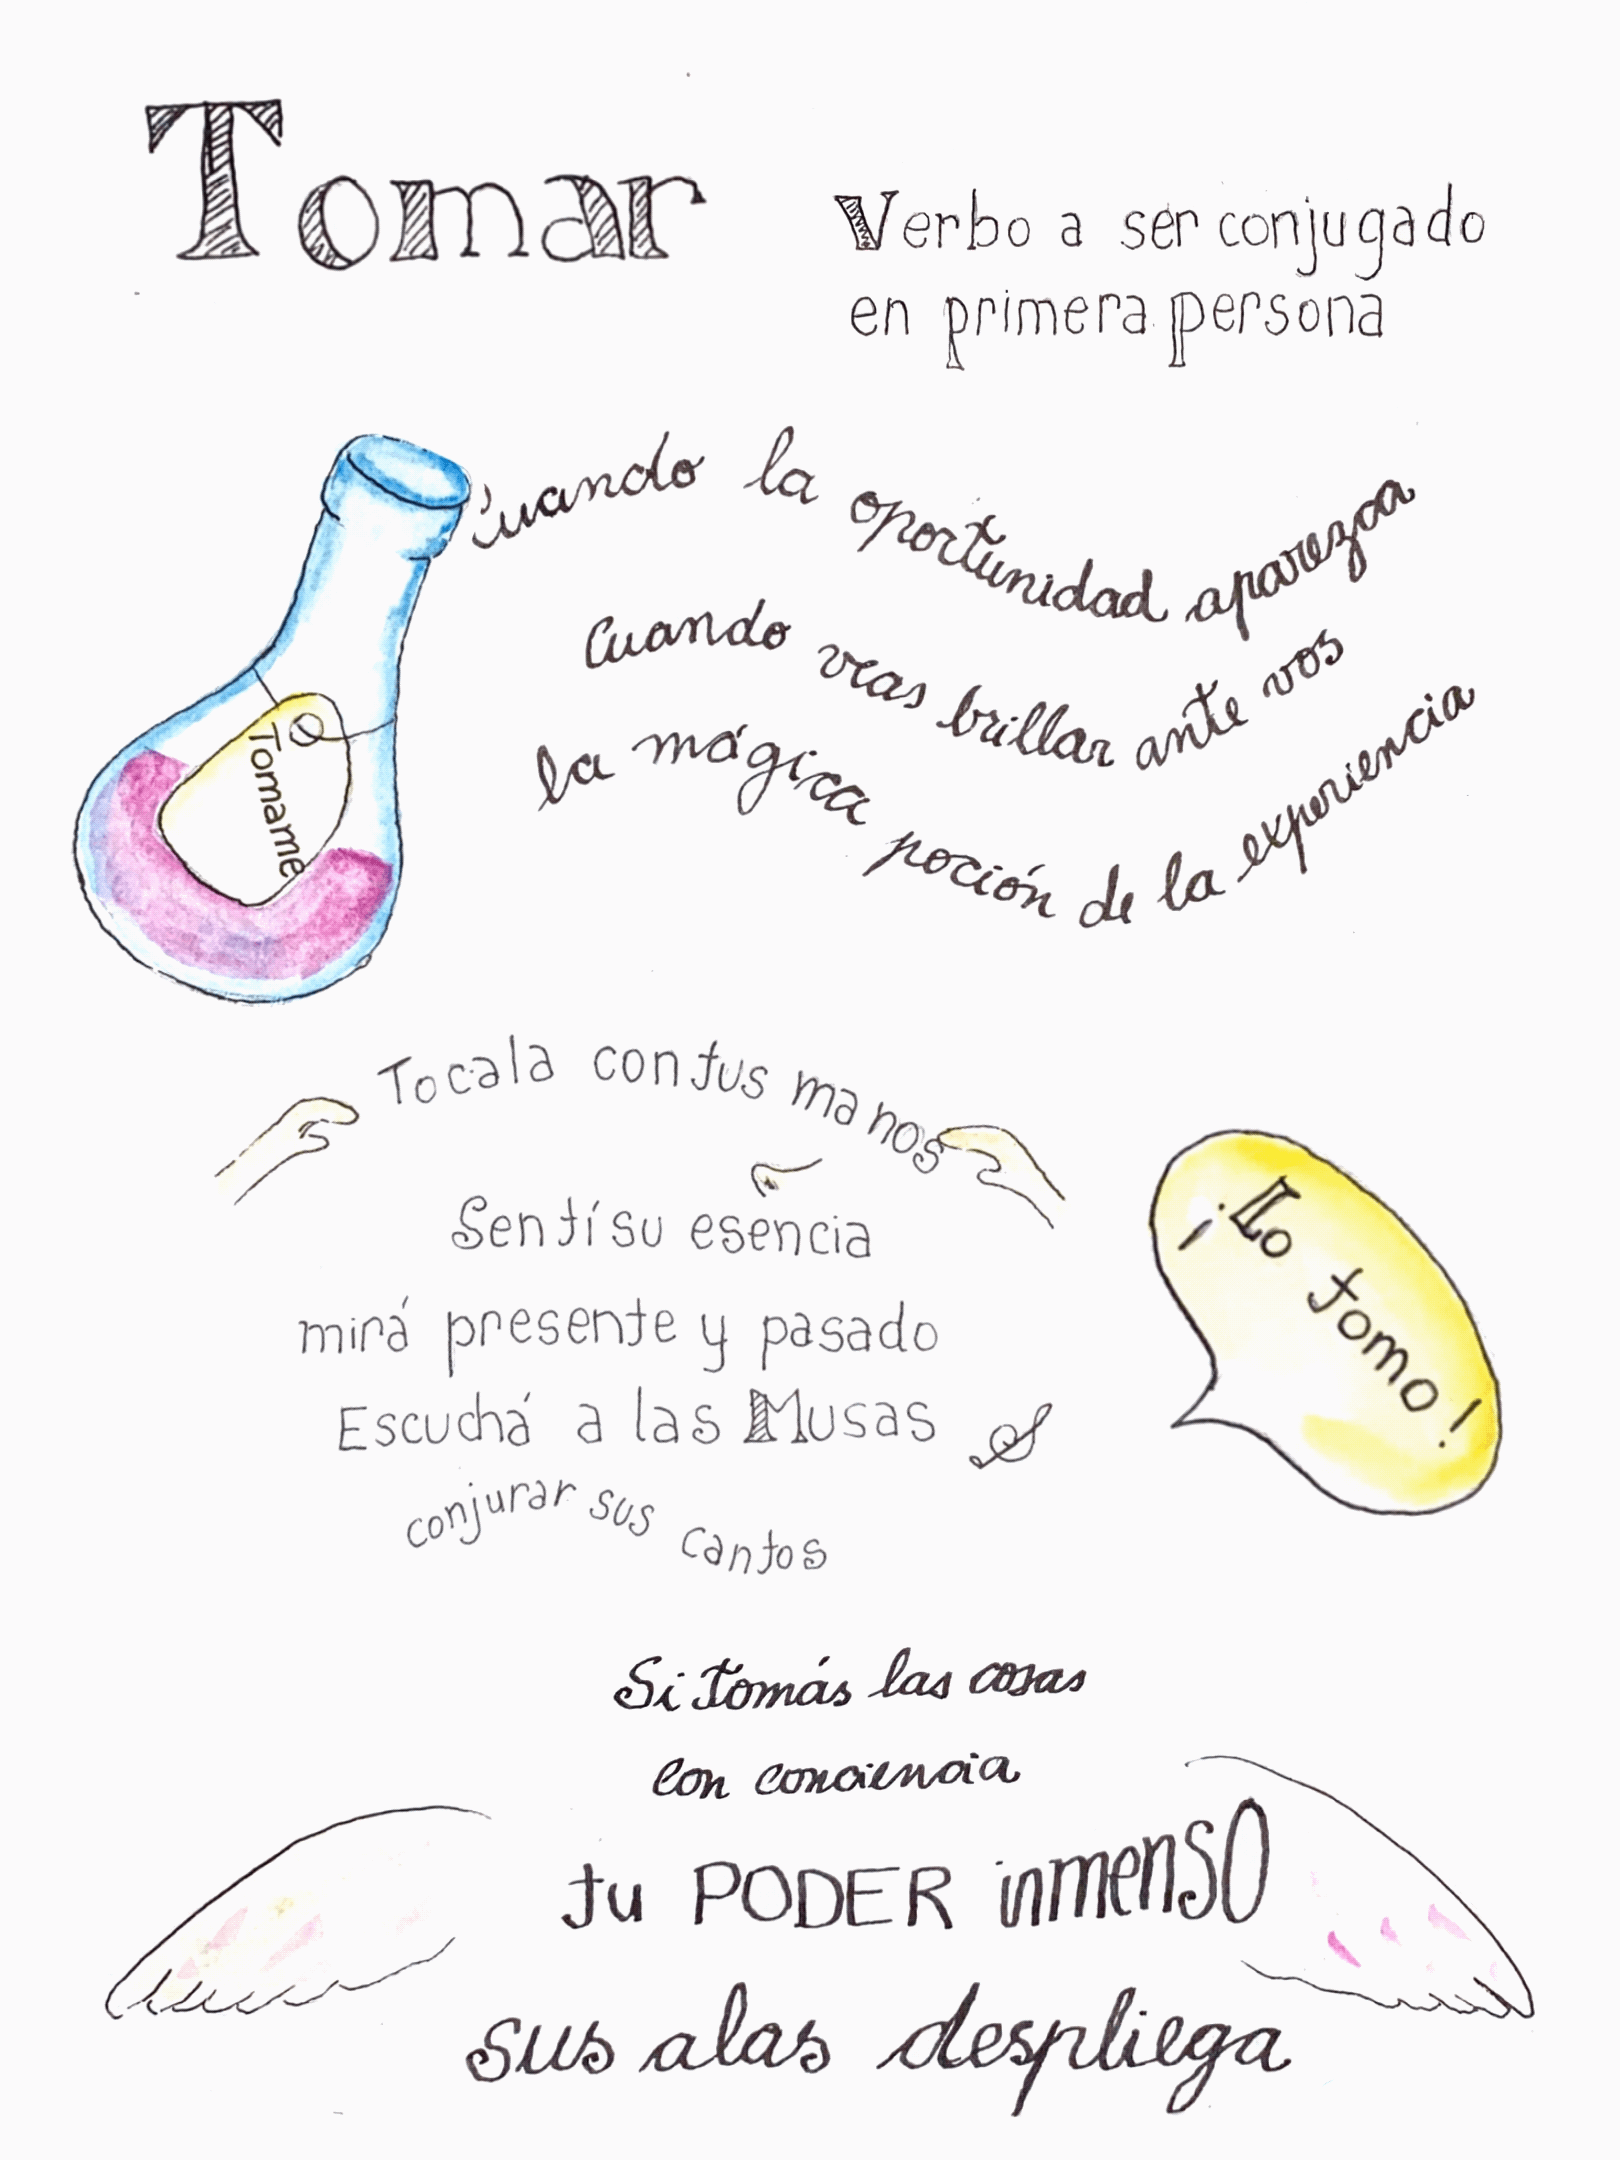 Tomar
Verbo a ser conjugado
en primera persona
Cuando la oportunidad aparezca
Cuando veas brillar ante vos
la mágica poción de la experiencia
Tomame
Tocala con tus manos
Sentí su esencia
mirá presente y pasado
Escuchá a las Musas
conjurar sus cantos
¡Lo tomo!
Si tomás las cosas
con conciencia
tu PODER inmenso
sus alas despliega